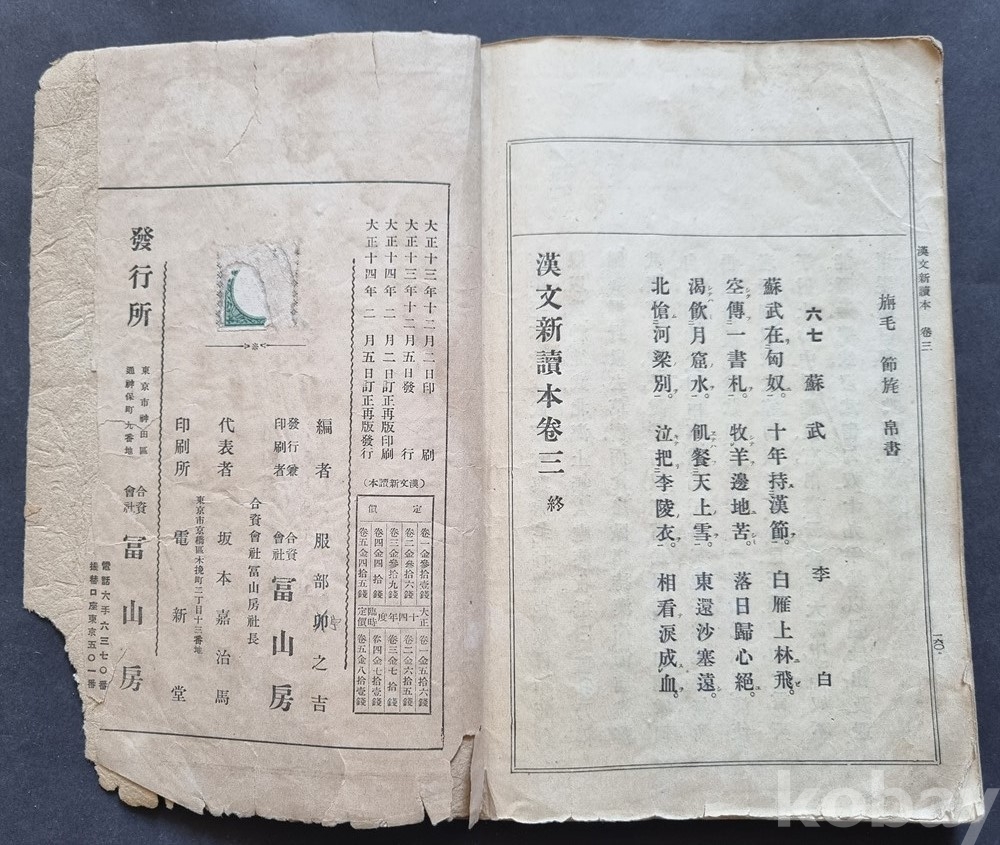 漢文新讀本 卷三
旄毛 節旄 帛書
一六〇
六七 蘇武 李白
蘇武在匈奴。十年持漢節。白雁上林飛。
空傳一書札。牧羊邊地苦。落日歸心絕。
渴飮月窟水。飢餐天上雪。東還沙塞遠。
北愴河梁別。泣把李陵衣。相看淚成血。
漢文新讀本卷三 終
大正十三年十二月二日印刷
大正十三年十二月五日發行
大正十四年二月二日訂正再版印刷
大正十四年二月五日訂正再版發行
(漢文新讀本)
定價
卷一金參拾壹錢
卷二金參拾六錢
卷三金參拾九錢
卷四金四拾錢
卷五金四拾五錢
大正十四年度臨時定價
卷一金五拾六錢
卷二金六拾五錢
卷三金七拾錢
卷四金七拾壹錢
卷五金八拾壹錢
編者 服部卯之吉
發行兼印刷者 合資會社 冨山房
合資會社冨山房社長
代表者 坂本嘉治馬
東京市京橋區木挽町二丁目十三番地
印刷所 電新堂
發行所 東京市神田區通神保町九番地 合資會社 冨山房
電話大手六三七〇番
振替口座東京五〇一番
kobay